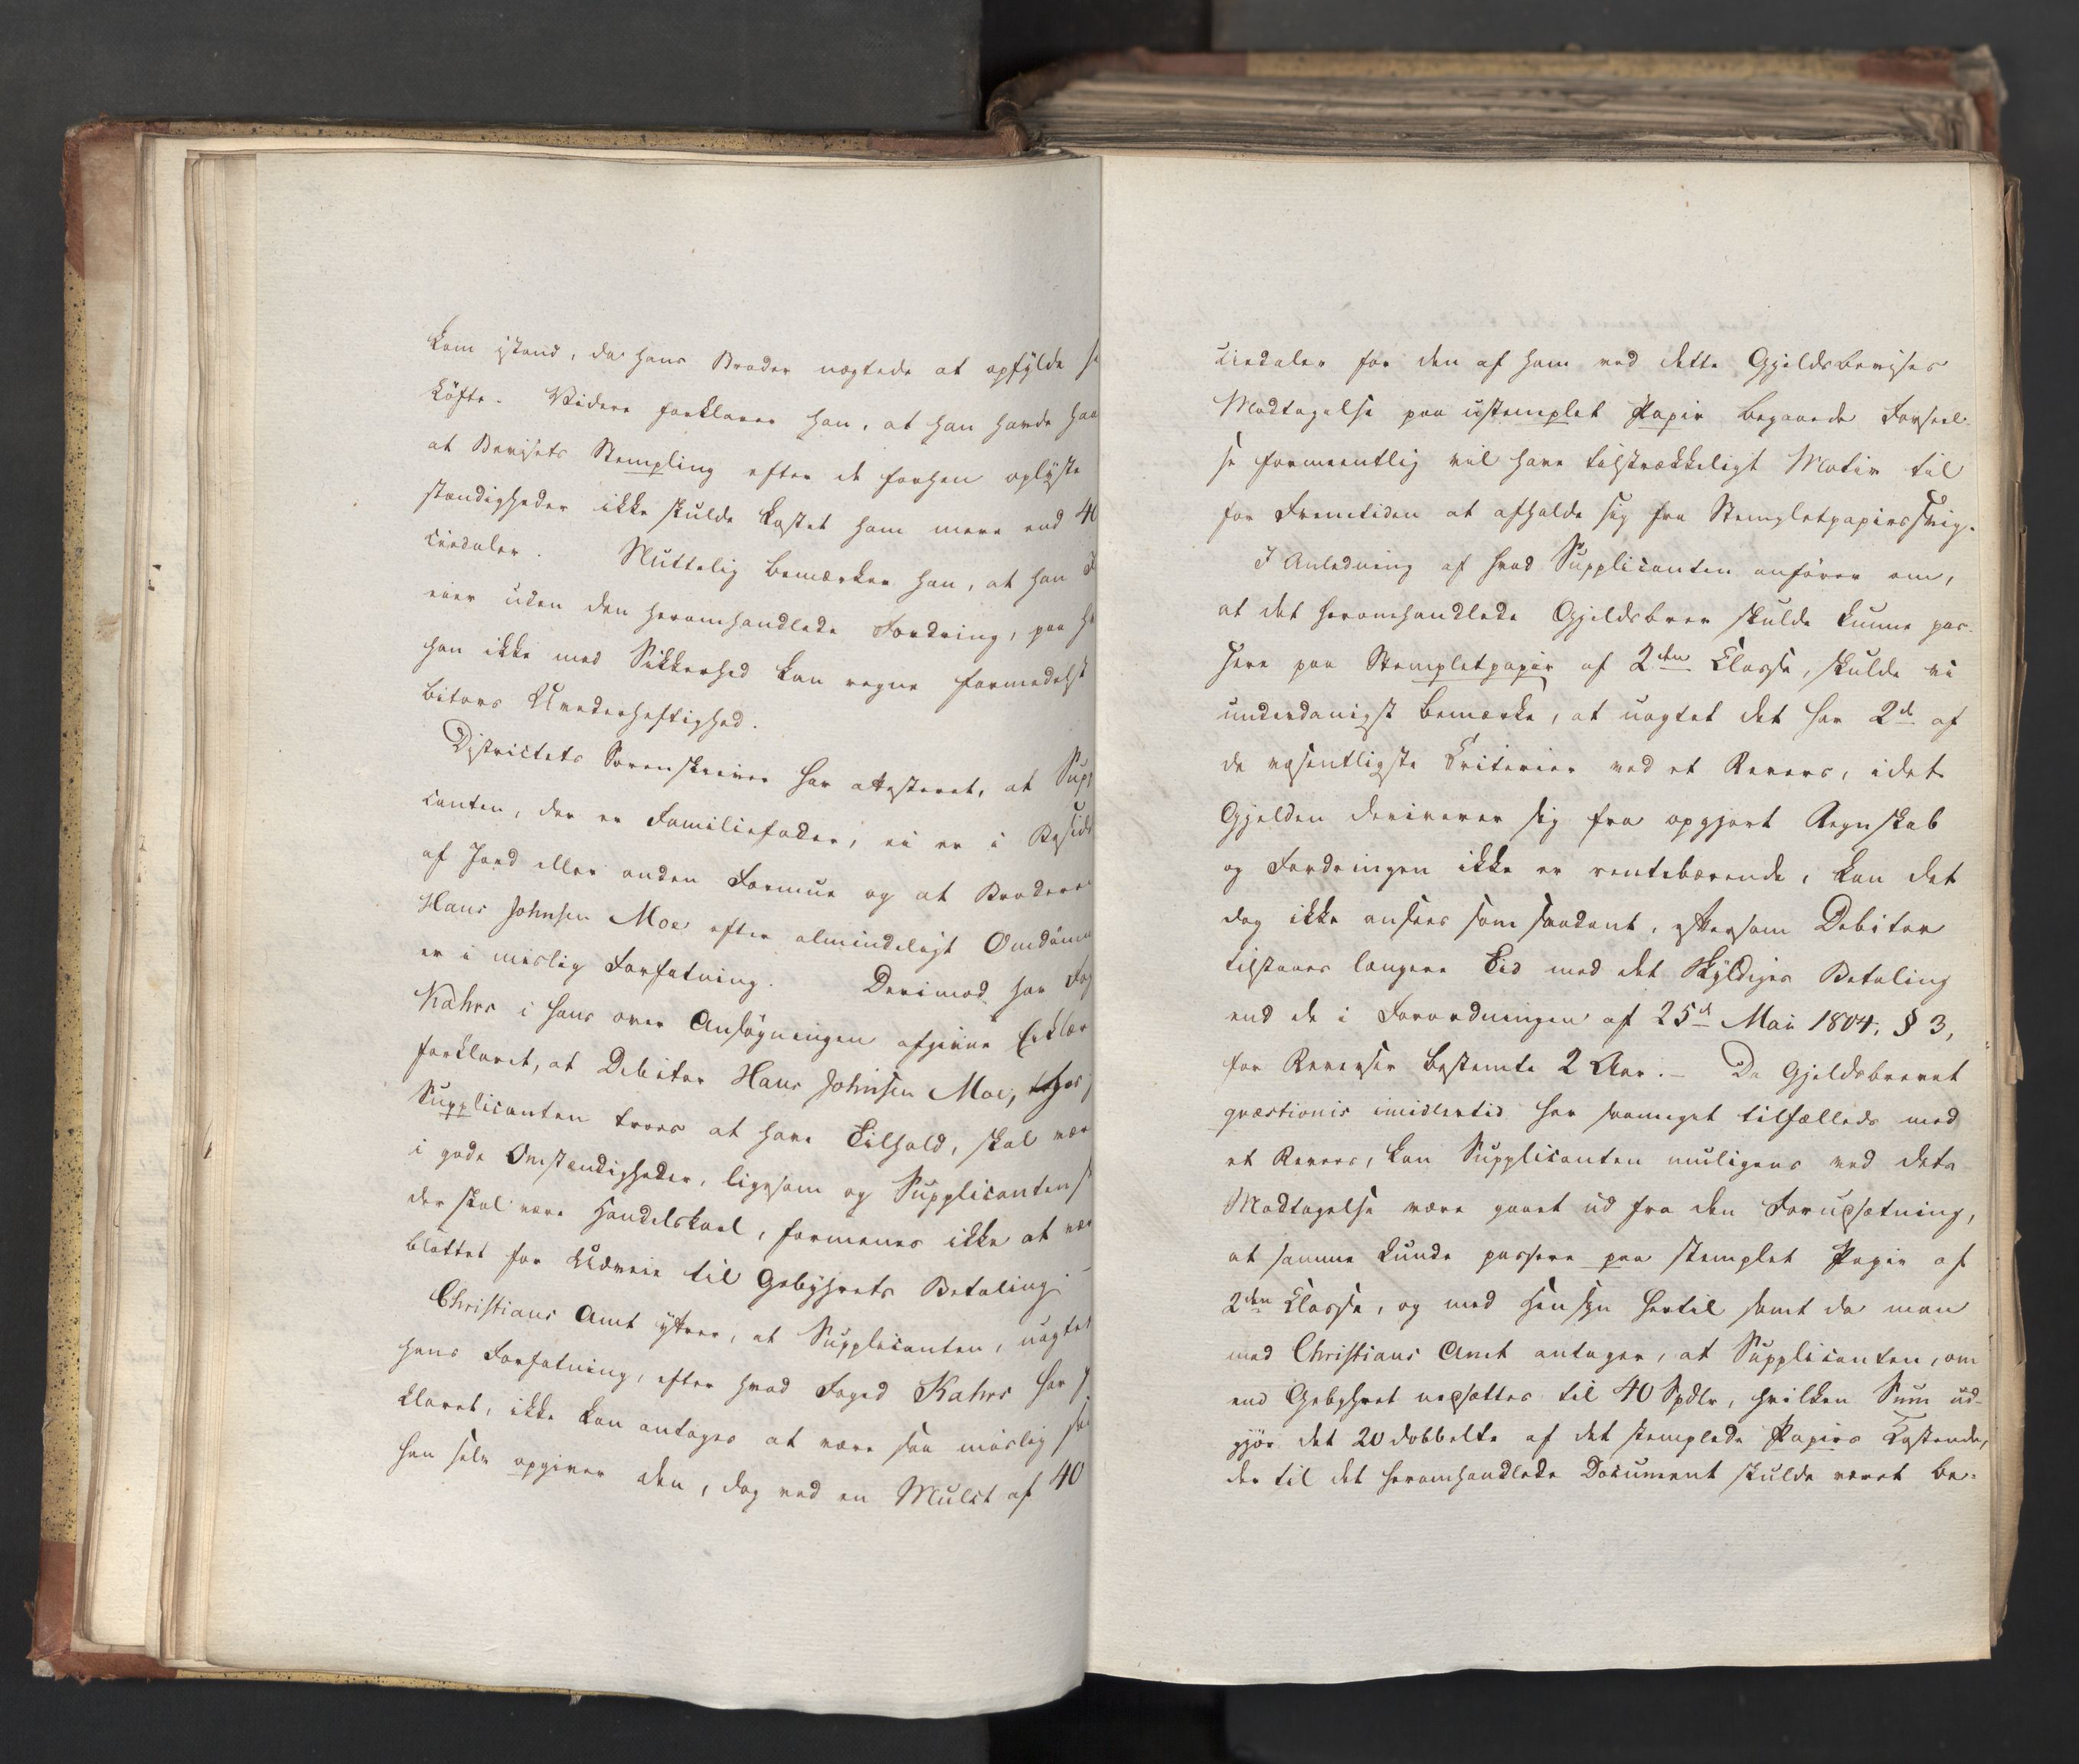 kom istand, da hans Broder nægtede at opfylde
Löfte. Videre forklarer han, at han havde
at Bevisets Stempling efter de forhen oplyste
stændigheder ikke skulde kostet ham mere end 40
ciedaler. Sluttelig bemærker han, at han
eier uden den heromhandlede Fordring, paa
han ikke med Sikkerhed kan regne formedelst
bitors Uvederheftighed.
Districtets Sorenskriver har attesteret, at Supp
canten, der er Familiefader, ei er i Besid
af Jord eller anden Formue og at Broderen
Hans Johnsen Moe efter almindeligt Omdömme
er i mislig Forfatning. Derimod har Fog
Kahrs i hans over Ansögningen afgivne Erklær
forklaret, at Debitor Hans Johnsen Moe, hos
Supplicanten troes at have Tilhold, skal vær
i gode Omstændigheder, ligesom og Supplicanten
der skal være Handelskarl, formenes ikke at vær
blottet for Udveie til Gebyhrets Betaling.
Christians Amt yttrer, at Supplicanten, uagtet
hans Forfatning, efter hvad Foged Kahrs har
klaret, ikke kan antages at være saa mislig
han selv opgiver den, dog ved en Mulct af 40
ciedaler for den af ham ved dette Gjeldsbevises
Modtagelse paa ustemplet Papir begaaede Forseel-
se formeentlig vil have tilstrækkeligt Motiv til
for Fremtiden at afholde sig fra Stempletpapirssvig.
I Anledning af hvad Supplicanten anförer om,
at det heromhandlede Gjeldsbrev skulde kunne pas-
sere paa Stempletpapir af 2den Classe, skulde vi
underdanigst bemærke, at uagtet det har 2de af
de væsentligste Criterier ved et Revers, idet
Gjelden deriverer sig fra opgjort Regnskab
og Fordringen ikke er rentebærende, kan det
dog ikke ansees som saadant, eftersom Debitor
tilstaaes længere Tid med det Skyldiges Betaling
end de i Forordningen af 25de Mai 1804, § 3,
for Reverser bestemte 2 Aar. – Da Gjeldsbrevet
qvæstionis imidlertid har saameget tilfælleds med
et Revers, kan Supplicanten muligens ved dets
Modtagelse være gaaet ud fra den Forudsætning,
at samme kunde passere paa stemplet Papir af
2den Classe, og med Hensyn hertil samt da man
med Christians Amt antager, at Supplicanten, om
end Gebyhret nedsættes til 40 Spdlr, hvilken Sum ud-
gjör det 20dobbelte af det stemplede Papirs Kostende,
der til det heromhandlede Document skulde været be-